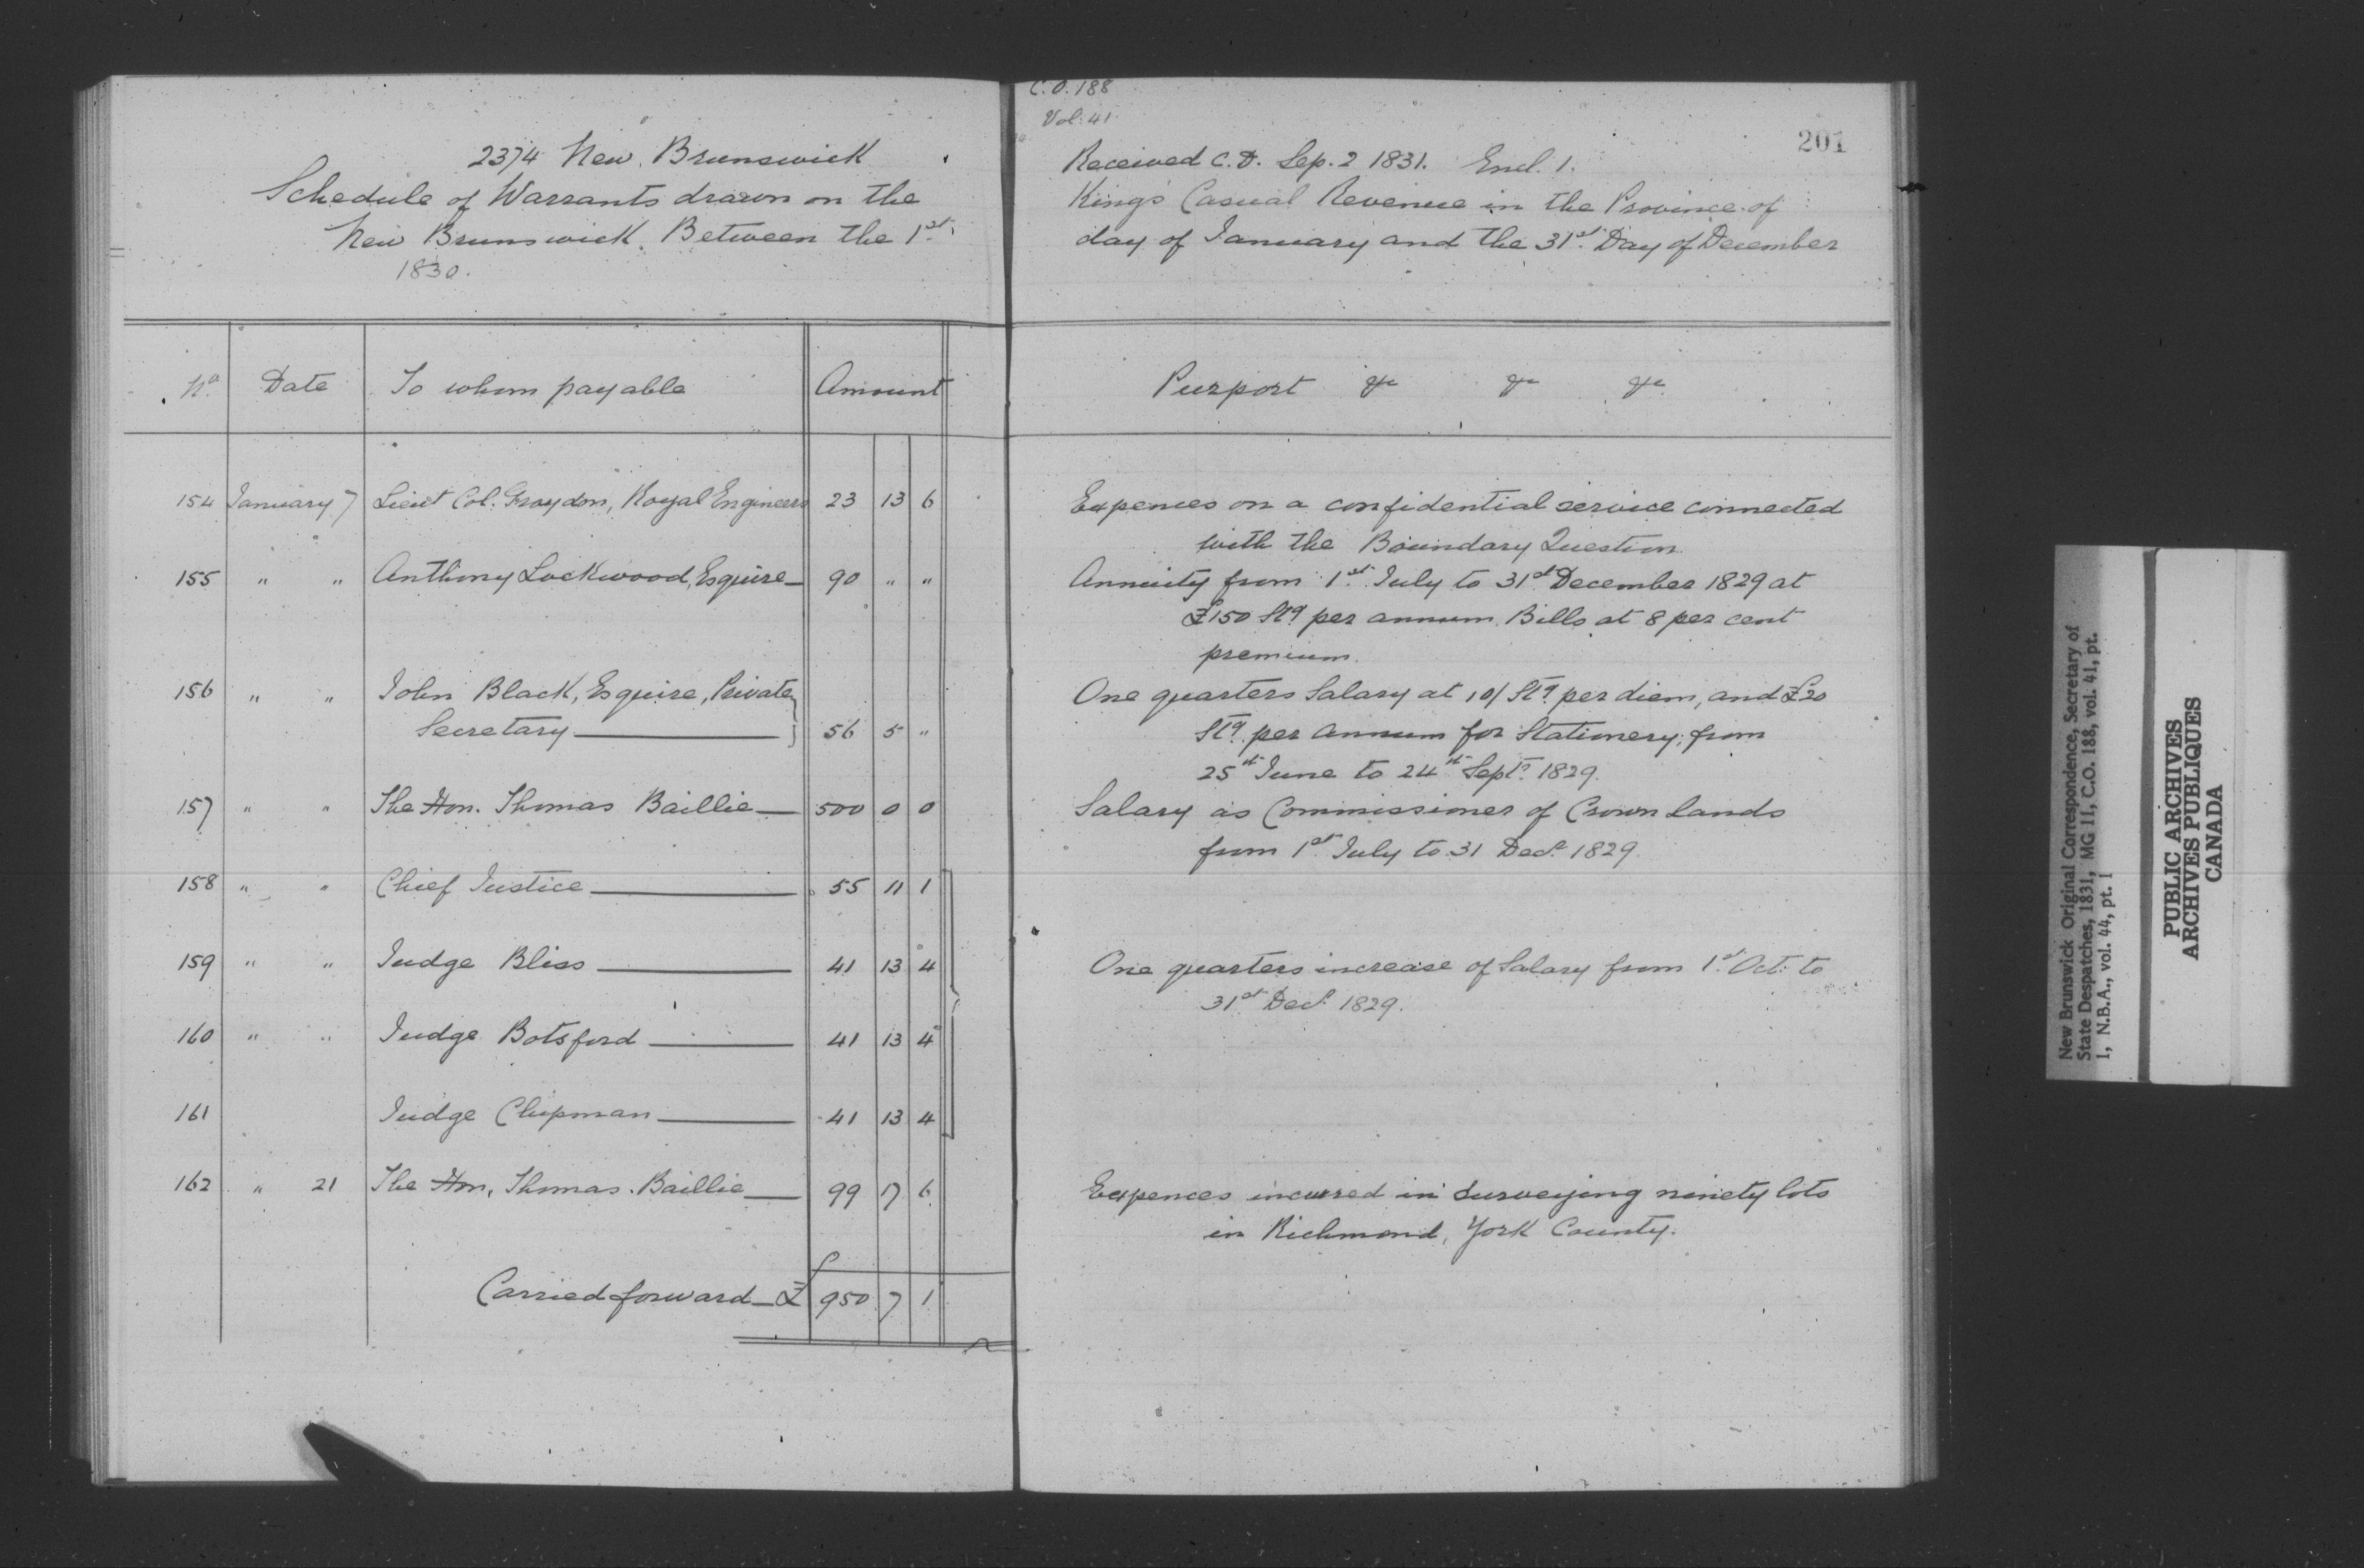 C.O. 188
Vol. 41
201
2374 New Brunswick Received C.O. Sep. 2 1831. Encl. 1.
Schedule of Warrants drawn on the King's Casual Revenue in the Province of
New Brunswick. Between the 1st day of January and the 31st Day of December
1830.
No. Date To whom payable Amount Purport &c &c &c
154 January 7 Lieut Col. Graydon, Royal Engineers 23 13 6 Expences on a confidential service connected
with the Boundary Question
155 " " Anthony Lockwood, Esquire — 90 " " Annuity from 1st July to 31st December 1829 at
£150 Stg per annum Bills at 8 per cent
premium.
156 " " John Black, Esquire, Private One quarters Salary at 10/ Stg per diem, and £20
Secretary — 56 5 " Stg. per Annum for Stationery, from
25th June to 24th Septr 1829.
157 " " The Hon. Thomas Baillie — 500 0 0 Salary as Commissioner of Crown Lands
from 1st July to 31 Decr 1829.
158 " " Chief Justice — 55 11 1
159 " " Judge Bliss — 41 13 4 One quarters increase of Salary from 1st Oct: to
31st Decr 1829.
160 " " Judge Botsford — 41 13 4
161 Judge Chipman — 41 13 4
162 " 21 The Hon. Thomas Baillie — 99 17 6 Expences incurred in Surveying ninety lots
in Richmond, York County.
Carried forward — £ 950 7 1
New Brunswick Original Correspondence, Secretary of
State Despatches, 1831, MG 11, C.O. 188, vol. 41, pt.
1, N.B.A., vol. 44, pt. 1
PUBLIC ARCHIVES
ARCHIVES PUBLIQUES
CANADA